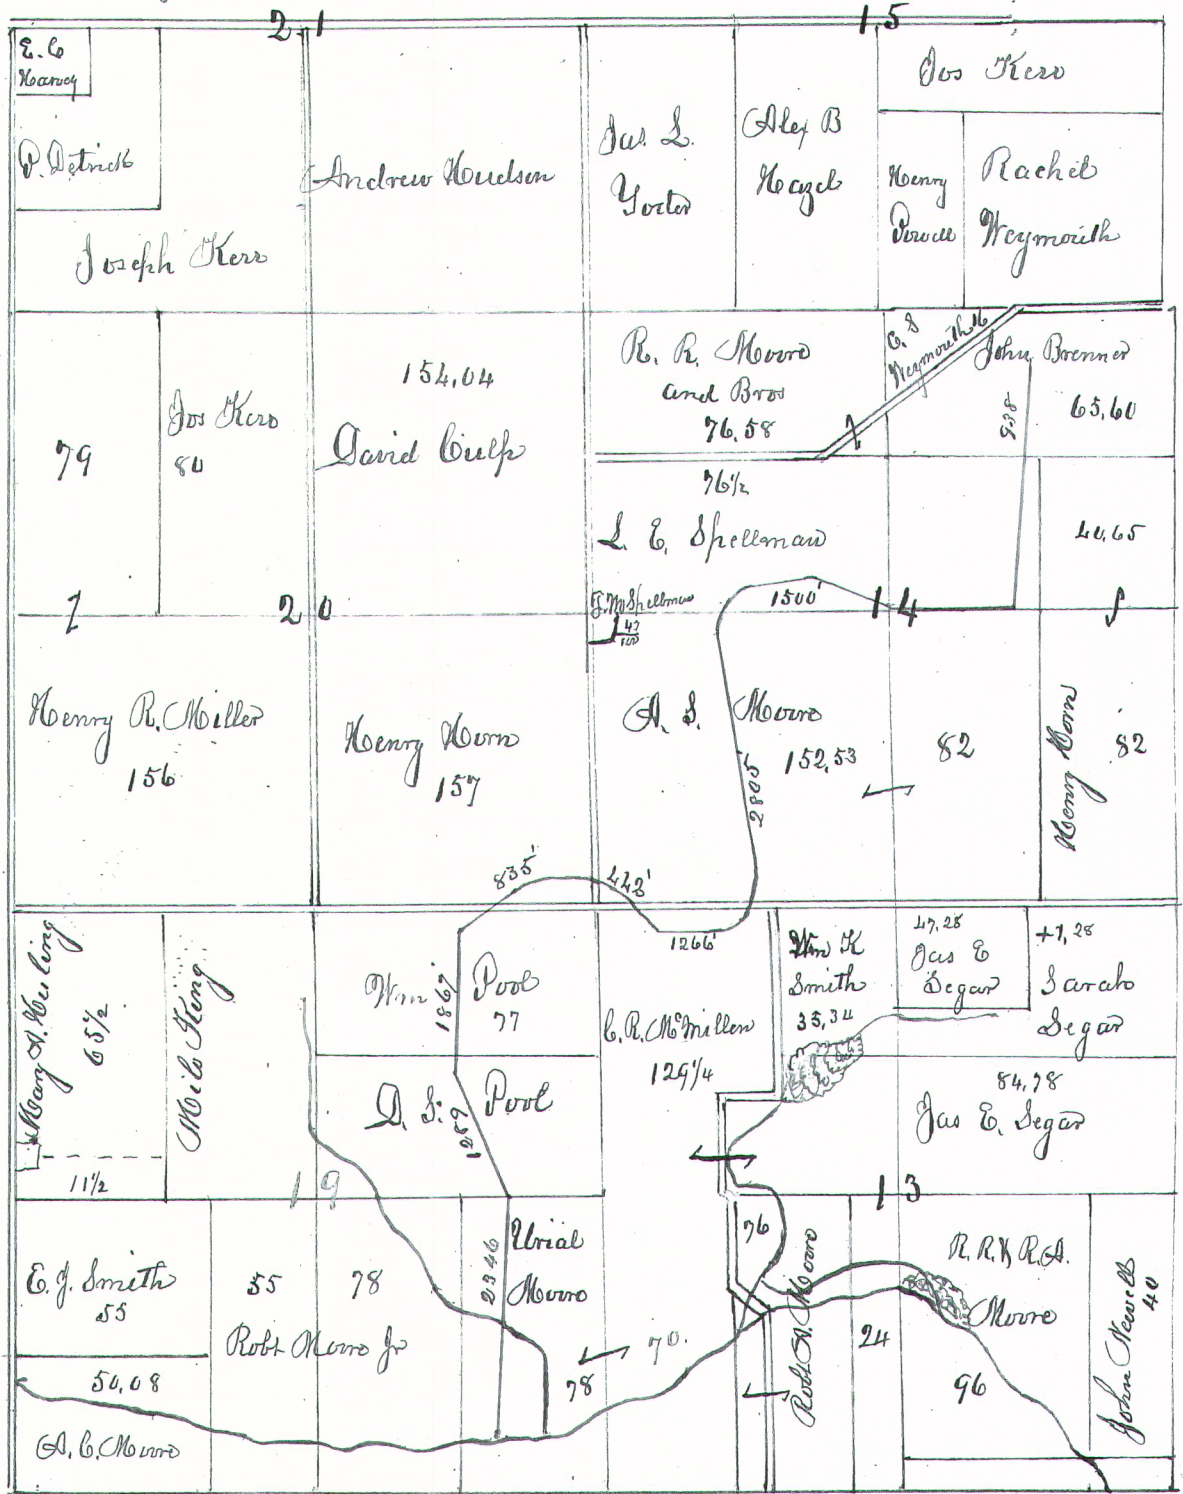 21
15
E. C
Harvey
P. Detrick
Joseph Kerr
Andrew Hudson
Jas L.
Yoder
Alex B
Hazel
Jos Kerr
Henry
Powell
Rachel
Weymouth
79
Jos Kerr
80
154,04
David Culp
R. R. Moore
and Bros
76,58
Weymouth 16
John Brenner
65,60
938
76½
L. E. Spellman
40,65
1500'
J. M. Spellman
20
14
Henry R. Miller
156
Henry Horn
157
A. S. Moore
152,53
82
Henry Horn
82
2805
835'
442'
1266'
Mary A. Huling
65½
11½
Milo King
Wm Pool
77
1867
D. S. Pool
1289
C. R. McMillen
129¼
Wm K
Smith
35,34
47,28
Jas E
Segar
47,28
Sarah
Segar
84,78
Jas E. Segar
19
13
E. J. Smith
55
55
78
Robt Moore Jr
2346
Urial
Moore
78
70.
76
Robt A. Moore
24
R. R. & R. A.
Moore
96
John Newell
40
50,08
A. C. Moore